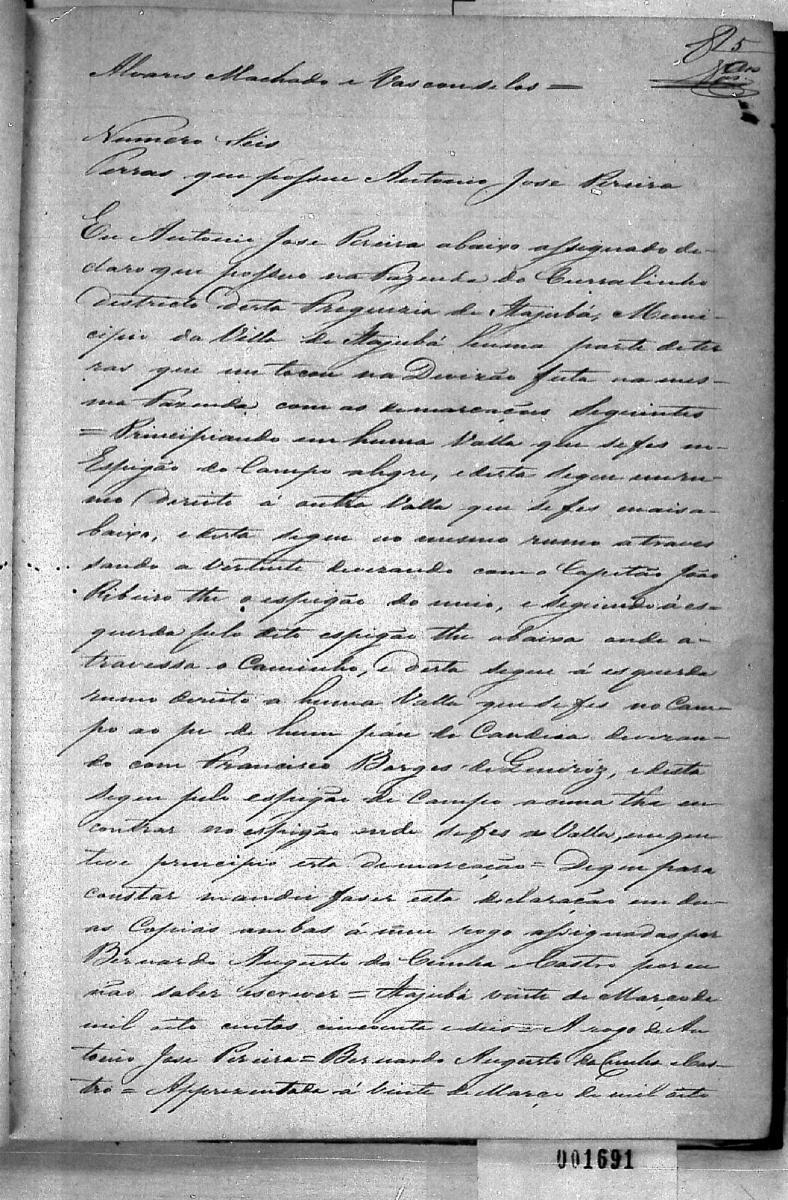 5
Alvares Machado e Vasconselos =
Numero Seis
Terras que possue Antonio Jose Pereira
Eu Antonio Jose Pereira abaixo assignado de-
claro que possuo na Fazenda do Curralinho
districto desta Freguezia de Itajubá, Muni-
cipio da Villa de Itajubá huma parte de ter
ras que me tocou na Divizão feita na mes-
ma Fazenda com as demarcações seguintes
= Principiando em huma Valla que se fes no
Espigão do Campo alegre, e desta segue em ru-
mo direito á outra Valla que se fes mais a-
baixo, e desta segue no mesmo rumo atraves
sando a Vertente devezando com o Capitão João
Ribeiro the o espigão do meio, e seguindo á es-
querda pelo dito espigão the abaixo onde a-
travessa o Caminho, e desta segue á esquerda
rumo direito a huma Valla que se fes no Cam-
po ao pe de hum páu de Candeia devezan-
do com Francisco Borges de Queiroz, e desta
segue pelo espigão de Campo acima the en
contrar no espigão onde se fes a Valla, em que
teve principio esta demarcação = E que para
constar mandei faser esta declaração em du-
as Copias ambas á meu rogo assignadas por
Bernardo Augusto da Cunha e Castro por eu
não saber escrever = Itajubá vinte de Março de
mil oito centos cincoenta e seis = A rogo de An
tonio Jose Pereira = Bernardo Augusto da Cunha e Cas-
tro = Apprezentada á vinte de Março de mil oito
001691